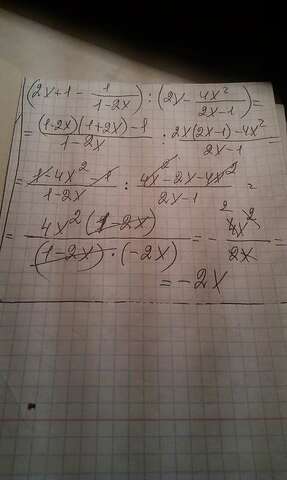 (2x+1 - 1/(1-2x)) : (2x - 4x²/(2x-1)) =
= ((1-2x)(1+2x)-1)/(1-2x) : (2x(2x-1)-4x²)/(2x-1)
= (1-4x²-1)/(1-2x) : (4x²-2x-4x²)/(2x-1) =
= 4x²(1-2x)/((1-2x)·(-2x)) = - 4x²/2x =
= -2x